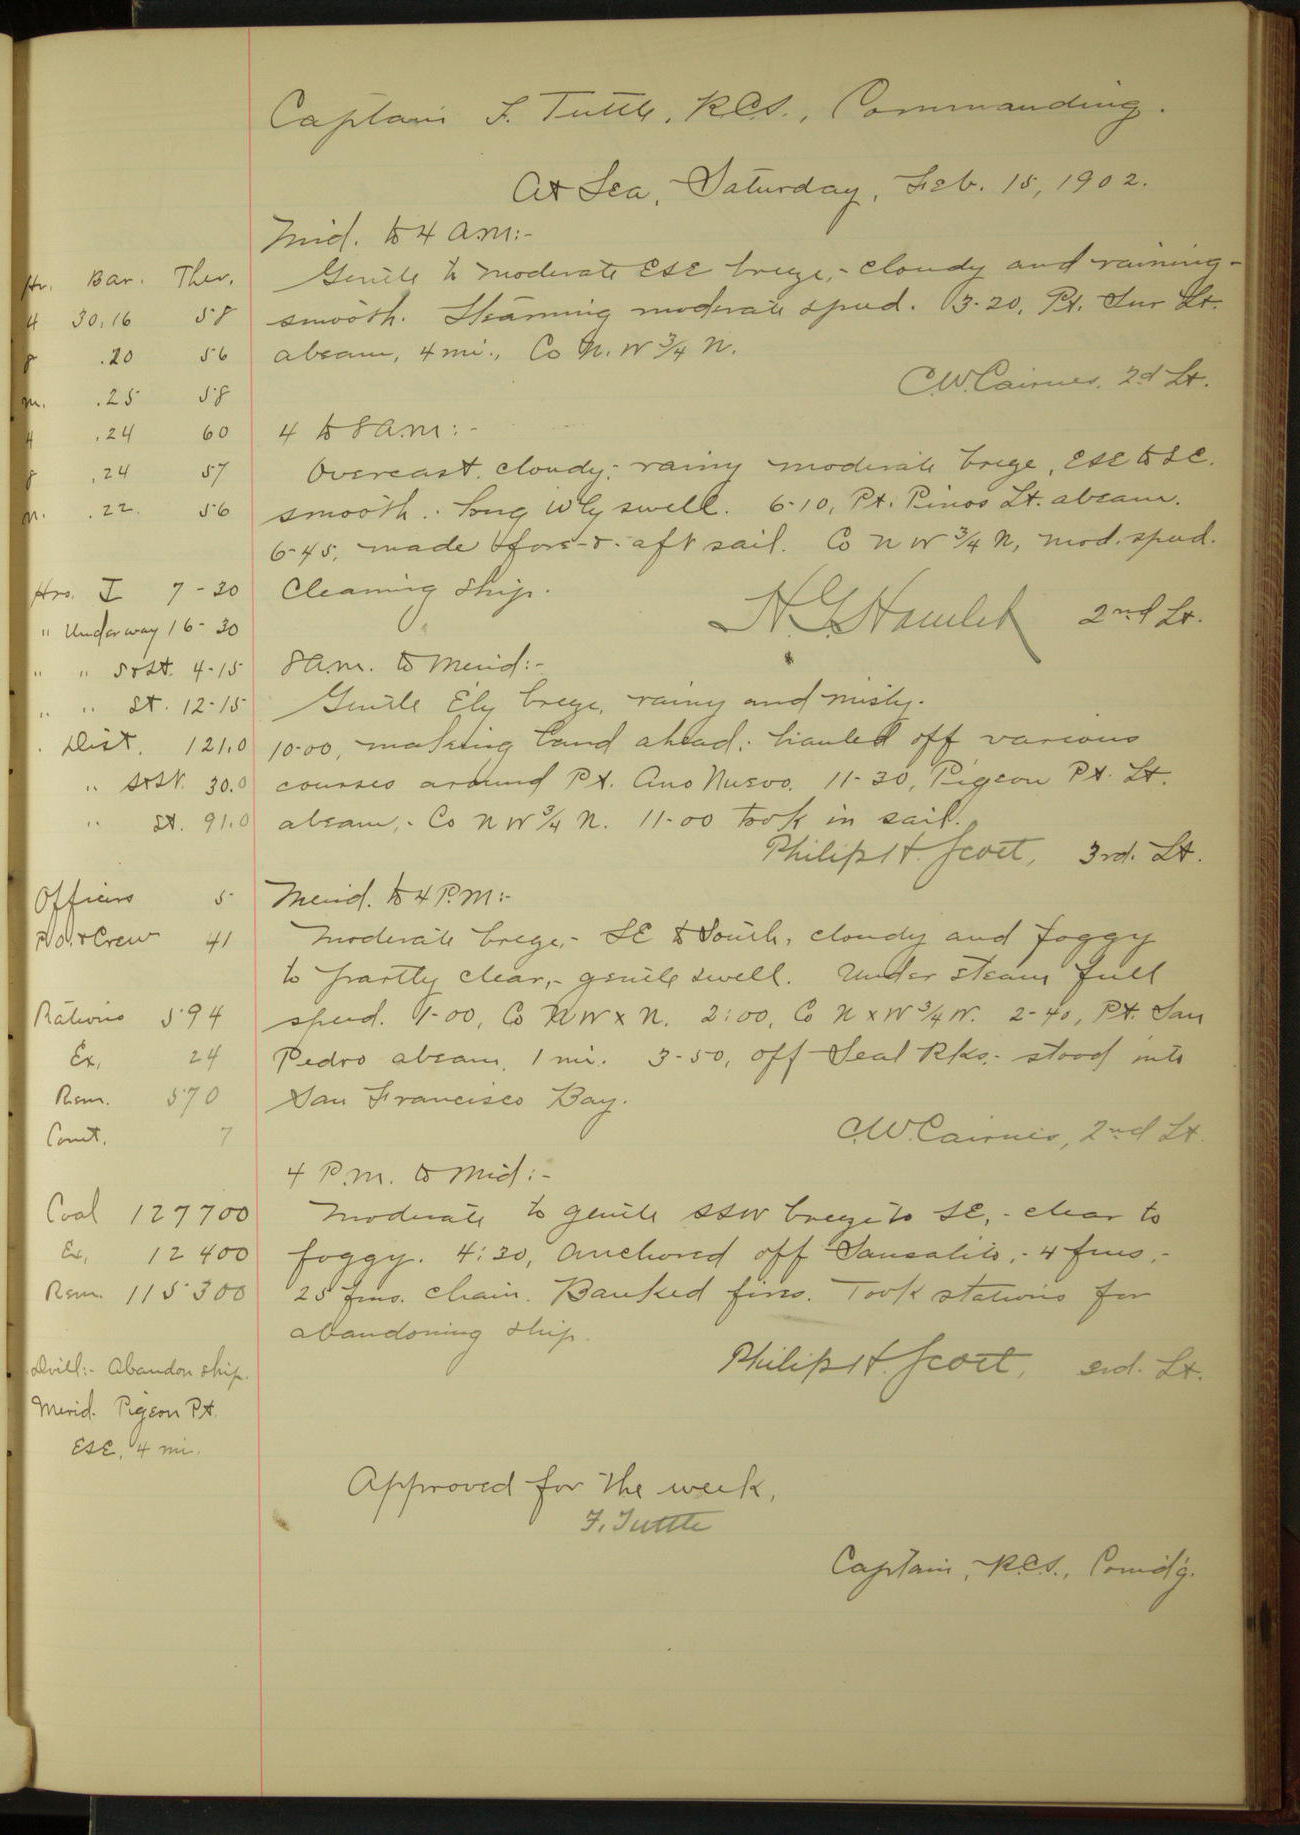 Captain F. Tuttle, R.C.S., Commanding.
At Sea, Saturday, Feb. 15, 1902.
Mid. to 4 a.m:-
Gentle to moderate ESE breeze,- cloudy and raining-
smooth. Steaming moderate speed. 3-20, Pt. Sur Lt.
abeam, 4 mi., Co N.W 3/4 N.
C.W. Cairnes, 2d Lt.
4 to 8 a.m:-
Overcast, cloudy,- rainy moderate breeze, ESE to SE.
smooth.- long W'ly swell. 6-10, Pt. Pinos Lt. abeam.
6-45, made fore-&-aft sail. Co N W 3/4 N, mod. speed.
Cleaning ship.
H.G. Hamlet 2nd Lt.
8 a.m. to Merid:-
Gentle E'ly breeze, rainy and misty.
10-00, making land ahead,- hauled off various
courses around Pt. Ano Nuevo. 11-30, Pigeon Pt. Lt.
abeam,- Co N W 3/4 N. 11-00 took in sail.
Philip H. Scott, 3rd. Lt.
Merid. to 4 P.M:-
Moderate breeze,- SE to South, cloudy and foggy
to partly clear,- gentle swell. Under steam full
speed. 1-00, Co N W x N. 2:00, Co N x W 3/4 W. 2-40, Pt. San
Pedro abeam, 1 mi. 3-50, off Seal Rks,- stood into
San Francisco Bay.
C.W. Cairnes, 2nd Lt.
4 P.m. to Mid:-
Moderate to gentle SSW breeze to SE,- clear to
foggy. 4:30, anchored off Sausalito,- 4 fms,-
25 fms. chain. Banked fires. Took stations for
abandoning ship.
Philip H. Scott, 3rd. Lt.
Approved for the week,
F. Tuttle
Captain, R.C.S., Comd'g.
Hr. Bar. Ther.
4 30.16 58
8 .20 56
m. .25 58
4 .24 60
8 .24 57
m. .22 56
Hrs. I 7-30
" Underway 16-30
" " S&St. 4-15
" " St. 12-15
Dist. 121.0
" S&St. 30.0
" St. 91.0
Officers 5
P.O. & Crew 41
Rations 594
Ex. 24
Rem. 570
Comt. 7
Coal 127700
Ex. 12400
Rem. 115300
Drill:- Abandon ship.
Merid. Pigeon Pt.
ESE, 4 mi.